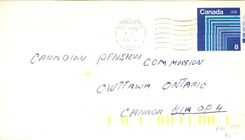 Canada
8
CANADIAN PENSION COMMISSION
OWTTAWA ONTARIO
CANADA K1A 0P4